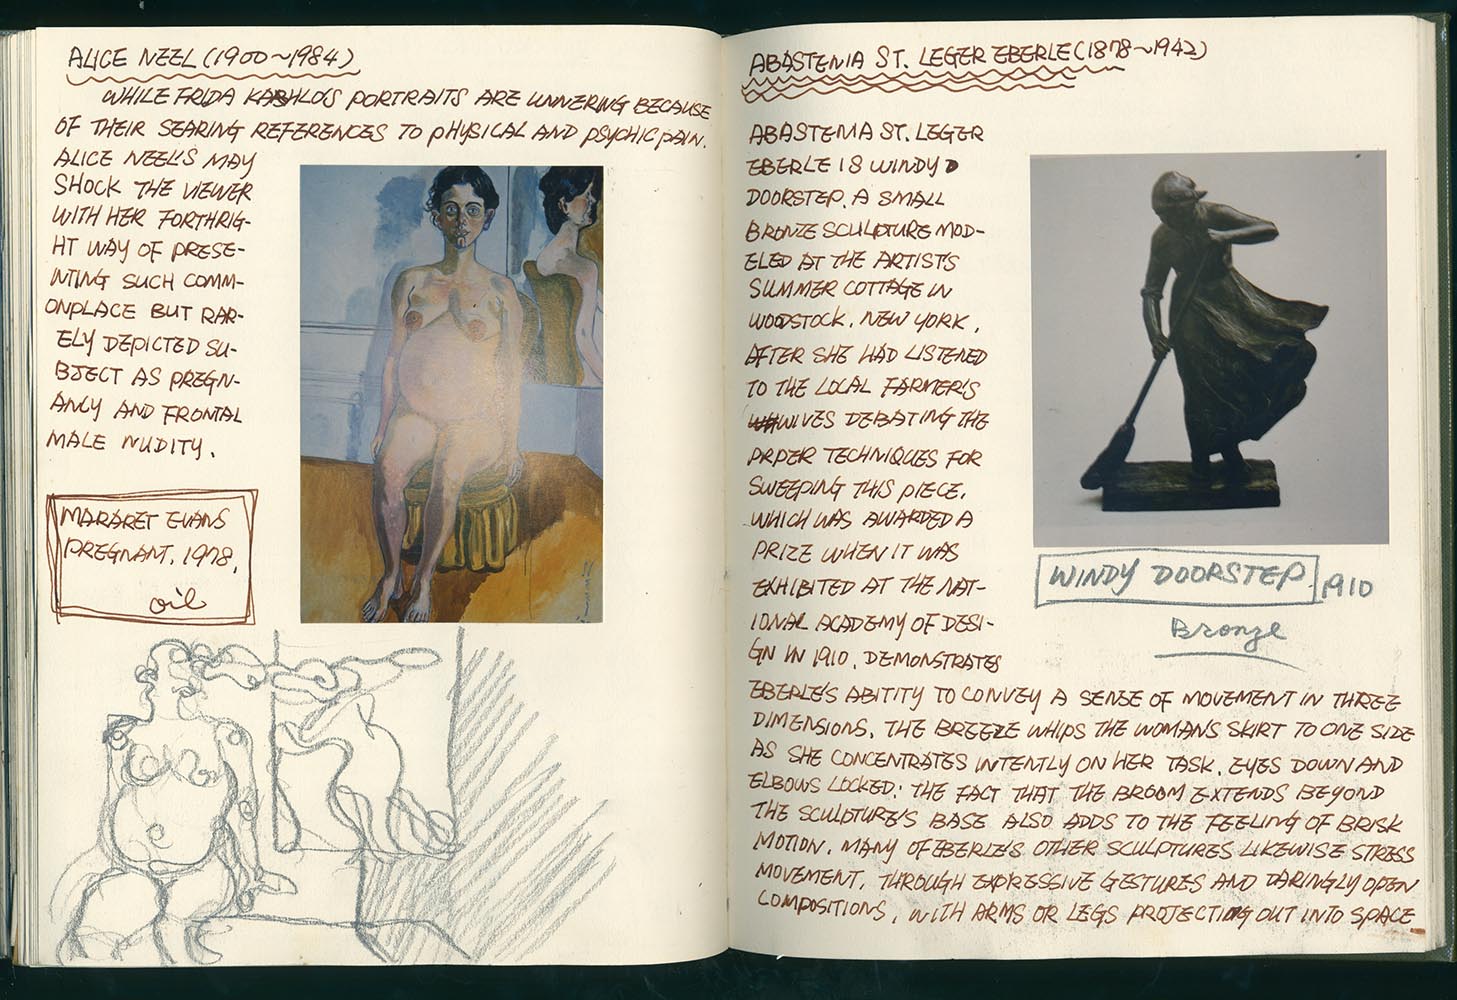 ALICE NEEL (1900~1984)
WHILE FRIDA KAHLO'S PORTRAITS ARE UNNERING BECAUSE
OF THEIR SEARING REFERENCES TO PHYSICAL AND PSYCHIC PAIN.
ALICE NEEL'S MAY
SHOCK THE VIEWER
WITH HER FORTHRIG-
HT WAY OF PRESE-
NTING SUCH COMM-
ONPLACE BUT RAR-
ELY DEPICTED SU-
BJECT AS PREGN-
ANCY AND FRONTAL
MALE NUDITY.
MARARET EVANS
PREGNANT, 1978,
oil
ABASTENIA ST. LEGER EBERLE (1878~1942)
ABASTENIA ST. LEGER
EBERLE 18 WINDY
DOORSTEP. A SMALL
BRONZE SCULPTURE MOD-
ELED AT THE ARTIST'S
SUMMER COTTAGE IN
WOODSTOCK, NEW YORK,
AFTER SHE HAD LISTENED
TO THE LOCAL FARMER'S
WIVES DEBATING THE
PRPER TECHNIQUES FOR
SWEEPING THIS PIECE,
WHICH WAS AWARDED A
PRIZE WHEN IT WAS
EXHIBITED AT THE NAT-
IONAL ACADEMY OF DESI-
GN IN 1910, DEMONSTRATES
EBERLE'S ABITITY TO CONVEY A SENSE OF MOVEMENT IN THREE
DIMENSIONS, THE BREEZE WHIPS THE WOMANS SKIRT TO ONE SIDE
AS SHE CONCENTRATES INTENTLY ON HER TASK, EYES DOWN AND
ELBOWS LOCKED; THE FACT THAT THE BROOM EXTENDS BEYOND
THE SCULPTURE'S BASE ALSO ADDS TO THE FEELING OF BRISK
MOTION. MANY OF EBERLE'S OTHER SCULPTURES LIKEWISE STRESS
MOVEMENT, THROUGH EXPRESSIVE GESTURES AND DARINGLY OPEN
COMPOSITIONS, WITH ARMS OR LEGS PROJECTING OUT INTO SPACE
WINDY DOORSTEP. 1910
Bronze